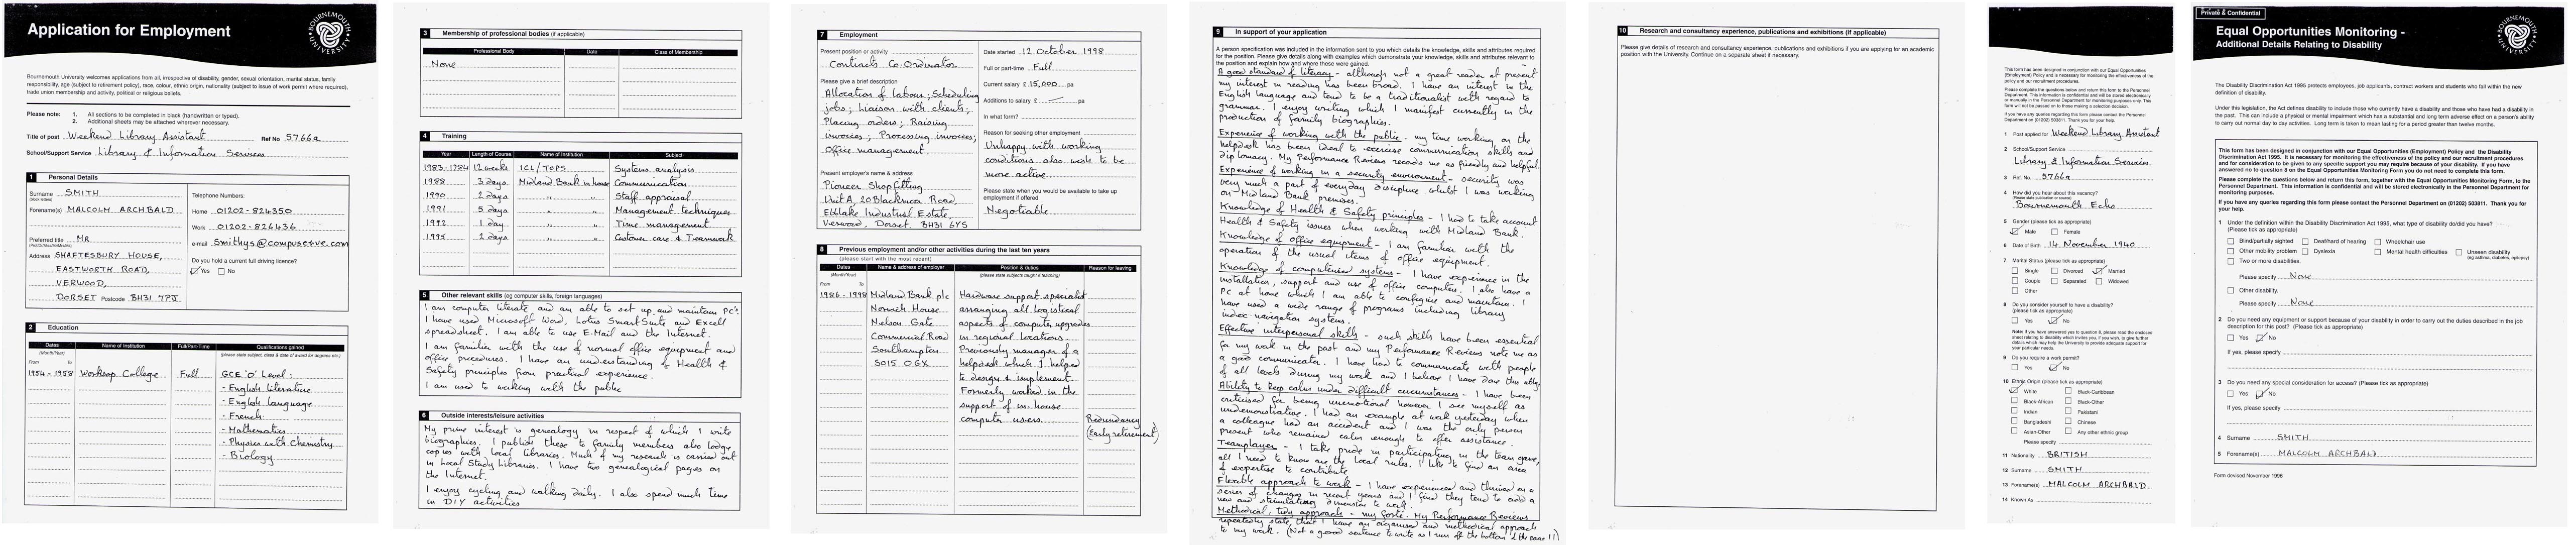 Application for Employment
BOURNEMOUTH UNIVERSITY
Bournemouth University welcomes applications from all, irrespective of disability, gender, sexual orientation, marital status, family
responsibility, age (subject to retirement policy), race, colour, ethnic origin, nationality (subject to issue of work permit where required),
trade union membership and activity, political or religious beliefs.
Please note: 1. All sections to be completed in black (handwritten or typed).
2. Additional sheets may be attached wherever necessary.
Title of post Weekend Library Assistant Ref No 5766a
School/Support Service Library & Information Services
1 Personal Details
Surname SMITH
(block letters)
Forename(s) MALCOLM ARCHBALD
Preferred title MR
Address SHAFTESBURY HOUSE,
EASTWORTH ROAD,
VERWOOD,
DORSET Postcode BH31 7PJ
Telephone Numbers:
Home 01202-824350
Work 01202-826436
e-mail Smithys@compuserve.com
Do you hold a current full driving licence?
Yes No
2 Education
Dates Name of Institution Full/Part-Time Qualifications gained
(Month/Year) (please state subject, class & date of award for degrees etc.)
From To
1954-1958 Worksop College Full GCE 'O' Level:
- English literature
- English language
- French
- Mathematics
- Physics with Chemistry
- Biology
3 Membership of professional bodies (if applicable)
Professional Body Date Class of Membership
None
4 Training
Year Length of Course Name of Institution Subject
1983-1984 12 weeks ICL/TOPS Systems analysis
1988 3 days Midland Bank in house Communication
1990 2 days " " Staff appraisal
1991 5 days " " Management techniques
1992 1 day " " Time management
1995 2 days " " Customer care & Teamwork
5 Other relevant skills (eg computer skills, foreign languages)
I am computer literate and am able to set up and maintain PCs.
I have used Microsoft Word, Lotus SmartSuite and Excel
spreadsheet. I am able to use E.Mail and the Internet.
I am familiar with the use of normal office equipment and
office procedures. I have an understanding of Health &
Safety principles from practical experience.
I am used to working with the public
6 Outside interests/leisure activities
My prime interest is genealogy in respect of which I write
biographies. I publish these to family members also lodge
copies with local libraries. Much of my research is carried out
in Local Study Libraries. I have two genealogical pages on
the Internet.
I enjoy cycling and walking daily. I also spend much time
in DIY activities
7 Employment
Present position or activity
Contracts Co-Ordinator
Please give a brief description
Allocation of labour; Scheduling
jobs; Liaison with clients;
Placing orders; Raising
invoices; Processing invoices;
Office management.
Present employer's name & address
Pioneer Shopfitting
Unit A, 20 Blackmoor Road,
Ebblake Industrial Estate,
Verwood, Dorset. BH31 6YS
Date started 12 October 1998
Full or part-time Full
Current salary £ 15,000 pa
Additions to salary £ — pa
In what form?
Reason for seeking other employment
Unhappy with working
conditions also wish to be
more active.
Please state when you would be available to take up
employment if offered
Negotiable.
8 Previous employment and/or other activities during the last ten years
(please start with the most recent)
Dates Name & address of employer Position & duties Reason for leaving
(Month/Year) (please state subjects taught if teaching)
From To
1986-1998 Midland Bank plc Hardware support specialist
Norwich House arranging all logistical
Nelson Gate aspects of computer upgrades
Commercial Road in regional locations.
Southampton Previously manager of a
SO15 0GX helpdesk which I helped
to design & implement.
Formerly worked in the
support of in-house
computer users. Redundancy
(Early retirement)
9 In support of your application
A person specification was included in the information sent to you which details the knowledge, skills and attributes required
for the position. Please give details along with examples which demonstrate your knowledge, skills and attributes relevant to
the position and explain how and where these were gained.
A good standard of literacy - although not a great reader at present
my interest in reading has been broad. I have an interest in the
English language and tend to be a traditionalist with regard to
grammar. I enjoy writing which I manifest currently in the
production of family biographies.
Experience of working with the public - my time working on the
helpdesk has been ideal to exercise communication skills and
diplomacy. My Performance Reviews records me as friendly and helpful.
Experience of working in a security environment - security was
very much a part of everyday discipline whilst I was working
on Midland Bank premises.
Knowledge of Health & Safety principles - I had to take account
Health & Safety issues when working with Midland Bank.
Knowledge of office equipment - I am familiar with the
operation of the usual items of office equipment.
Knowledge of computerised systems - I have experience in the
installation, support and use of office computers. I also have a
PC at home which I am able to configure and maintain. I
have used a wide range of programs including library
index navigation systems.
Effective interpersonal skills - such skills have been essential
for my work in the past and my Performance Reviews note me as
a good communicator. I have had to communicate with people
of all levels during my work and I believe I have done this ably.
Ability to keep calm under difficult circumstances - I have been
criticised for being unemotional however I see myself as
undemonstrative. I had an example at work yesterday when
a colleague had an accident and I was the only person
present who remained calm enough to offer assistance.
Teamplayer - I take pride in participating in the team game,
all I need to know are the local rules. I like to find an area
of expertise to contribute
Flexible approach to work - I have experienced and thrived on a
series of changes in recent years and I find they tend to add a
new and stimulating dimension to work.
Methodical, tidy approach - my forte. My Performance Reviews
repeatedly state that I have an organised and methodical approach
to my work. (Not a good sentence to write as I run off the bottom of the page!!)
10 Research and consultancy experience, publications and exhibitions (if applicable)
Please give details of research and consultancy experience, publications and exhibitions if you are applying for an academic
position with the University. Continue on a separate sheet if necessary.
This form has been designed in conjunction with our Equal Opportunities
(Employment) Policy and is necessary for monitoring the effectiveness of the
policy and our recruitment procedures.
Please complete the questions below and return this form to the Personnel
Department. This information is confidential and will be stored electronically
or manually in the Personnel Department for monitoring purposes only. This
form will not be passed on to those making a selection decision.
If you have any queries regarding this form please contact the Personnel
Department on (01202) 503811. Thank you for your help.
1 Post applied for Weekend Library Assistant
2 School/Support Service
Library & Information Services
3 Ref. No. 5766a
4 How did you hear about this vacancy?
(Please state publication or source)
Bournemouth Echo
5 Gender (please tick as appropriate)
Male Female
6 Date of Birth 14 November 1940
7 Marital Status (please tick as appropriate)
Single Divorced Married
Couple Separated Widowed
Other
8 Do you consider yourself to have a disability?
(please tick as appropriate)
Yes No
Note: If you have answered yes to question 8, please read the enclosed
sheet relating to disability which invites you, if you wish, to give further
details which may help the University to provide adequate support for
your particular needs.
9 Do you require a work permit?
Yes No
10 Ethnic Origin (please tick as appropriate)
White Black-Caribbean
Black-African Black-Other
Indian Pakistani
Bangladeshi Chinese
Asian-Other Any other ethnic group
Please specify
11 Nationality BRITISH
12 Surname SMITH
13 Forename(s) MALCOLM ARCHBALD
14 Known As
Private & Confidential
Equal Opportunities Monitoring -
Additional Details Relating to Disability
BOURNEMOUTH UNIVERSITY
The Disability Discrimination Act 1995 protects employees, job applicants, contract workers and students who fall within the new
definition of disability.
Under this legislation, the Act defines disability to include those who currently have a disability and those who have had a disability in
the past. This can include a physical or mental impairment which has a substantial and long term adverse effect on a person's ability
to carry out normal day to day activities. Long term is taken to mean lasting for a period greater than twelve months.
This form has been designed in conjunction with our Equal Opportunities (Employment) Policy and the Disability
Discrimination Act 1995. It is necessary for monitoring the effectiveness of the policy and our recruitment procedures
and for consideration to be given to any specific support you may require because of your disability. If you have
answered no to question 8 on the Equal Opportunities Monitoring Form you do not need to complete this form.
Please complete the questions below and return this form, together with the Equal Opportunities Monitoring Form, to the
Personnel Department. This information is confidential and will be stored electronically in the Personnel Department for
monitoring purposes.
If you have any queries regarding this form please contact the Personnel Department on (01202) 503811. Thank you for
your help.
1 Under the definition within the Disability Discrimination Act 1995, what type of disability do/did you have?
(Please tick as appropriate)
Blind/partially sighted Deaf/hard of hearing Wheelchair use
Other mobility problem Dyslexia Mental health difficulties Unseen disability
(eg asthma, diabetes, epilepsy)
Two or more disabilities.
Please specify None
Other disability.
Please specify None
2 Do you need any equipment or support because of your disability in order to carry out the duties described in the job
description for this post? (Please tick as appropriate)
Yes No
If yes, please specify
3 Do you need any special consideration for access? (Please tick as appropriate)
Yes No
If yes, please specify
4 Surname SMITH
5 Forename(s) MALCOLM ARCHBALD
Form revised November 1996